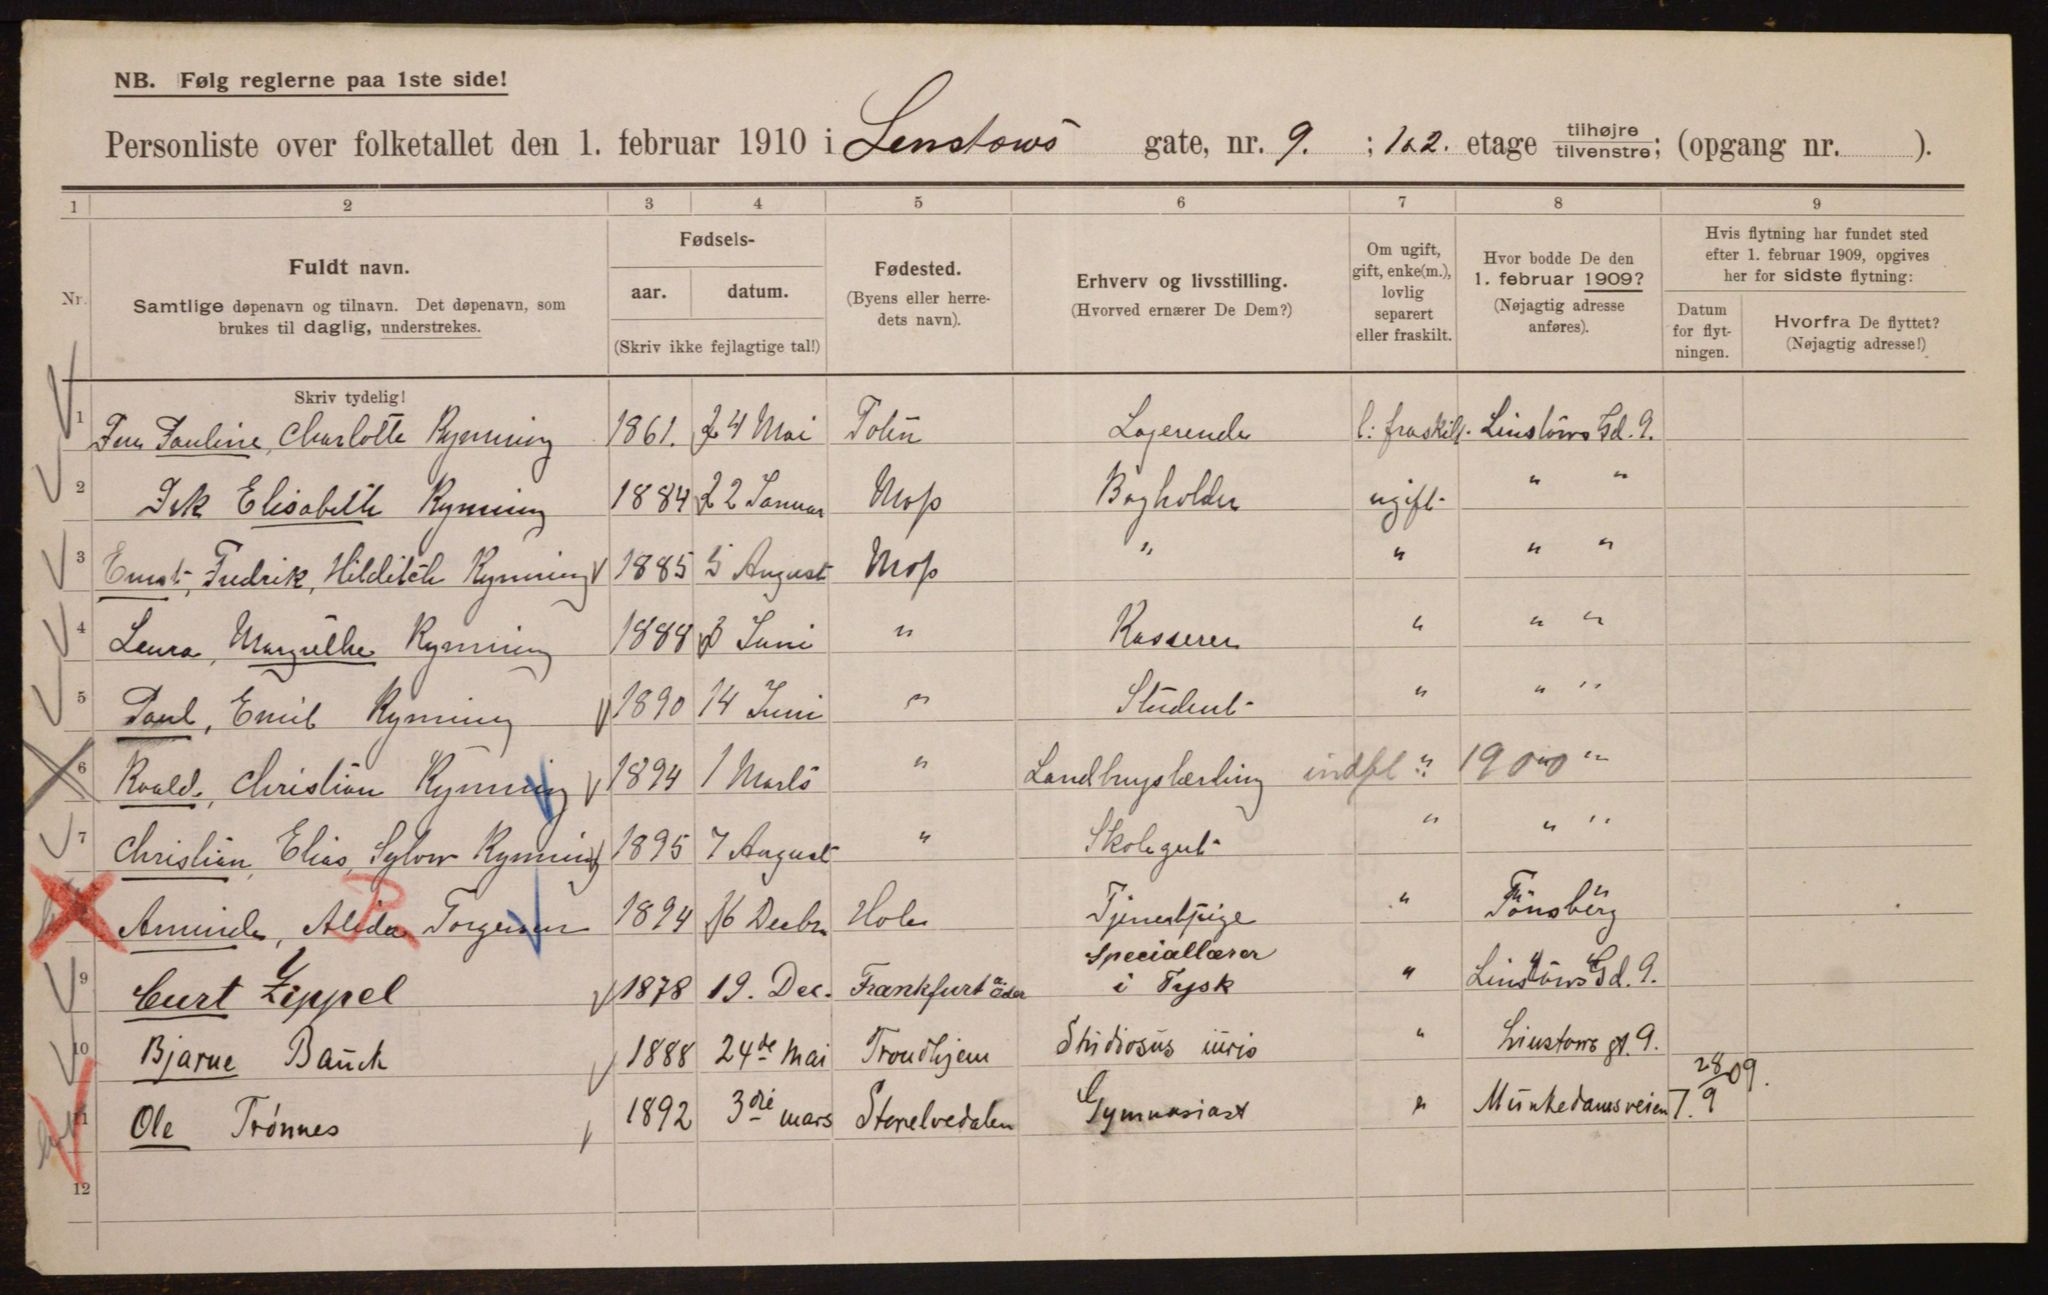 NB. Følg reglerne paa 1ste side!
Personliste over folketallet den 1. februar 1910 i Linstows gate, nr. 9. ; 1&2. etage tilhøjre / tilvenstre; (opgang nr. ).
1 2 3 4 5 6 7 8 9
Nr.
Fuldt navn.
Samtlige døpenavn og tilnavn. Det døpenavn, som
brukes til daglig, understrekes.
Fødsels-
aar. datum.
(Skriv ikke fejlagtige tal!)
Fødested.
(Byens eller herre-
dets navn).
Erhverv og livsstilling.
(Hvorved ernærer De Dem?)
Om ugift,
gift, enke(m.),
lovlig
separert
eller fraskilt.
Hvor bodde De den
1. februar 1909?
(Nøjagtig adresse
anføres).
Hvis flytning har fundet sted
efter 1. februar 1909, opgives
her for sidste flytning:
Datum
for flyt-
ningen.
Hvorfra De flyttet?
(Nøjagtig adresse!)
Skriv tydelig!
1 Fru Pauline, Charlotte Rynning 1861. 24 Mai Toten l: fraskilt. Linstows Gd. 9.
2 Frk Elisabeth Rynning 1884 22 Januar Moss Bogholder ugift " "
3 Ernst, Fredrik, Hilditch Rynning 1885 5 August Moss " " " "
4 Laura, Margrethe Rynning 1888 3 Juni " Kasserer " " "
5 Paul, Emil Rynning 1890 14 Juni " Student " " "
6 Roald, Christian Rynning 1894 1 Marts " Landbrugslærling indfl " 1900 "
7 Christian, Elias, Sylow Rynning 1895 7 August " Skolegut " " "
Aminda, Alida Torgersen R 1894 16 Decbr Hole Tjenestpige " Tönsberg
9 Curt Zippel 1878 19. Dec. Frankfurt a Oder Speciallærer
i Tysk " Linstows Gd. 9.
10 Bjarne Bauck 1888 24de Mai Trondhjem Studiosus iuris " Linstows gt. 9.
11 Ole Trønnes 1892 3die mars Storelvedalen Gymnasiast " Munkedamsveien 7. 28/9 09.
12